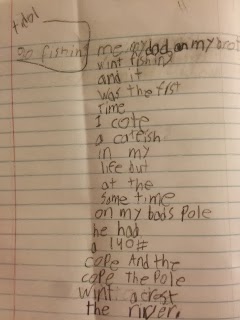 go fishing me my dad on my brot
wint fishing
and it
was the fist
time
I cote
a catfish
in my
life but
at the
same time
on my bads Pole
he had
a 140#
cope And the
cope the Pole
wint acrest
the river.